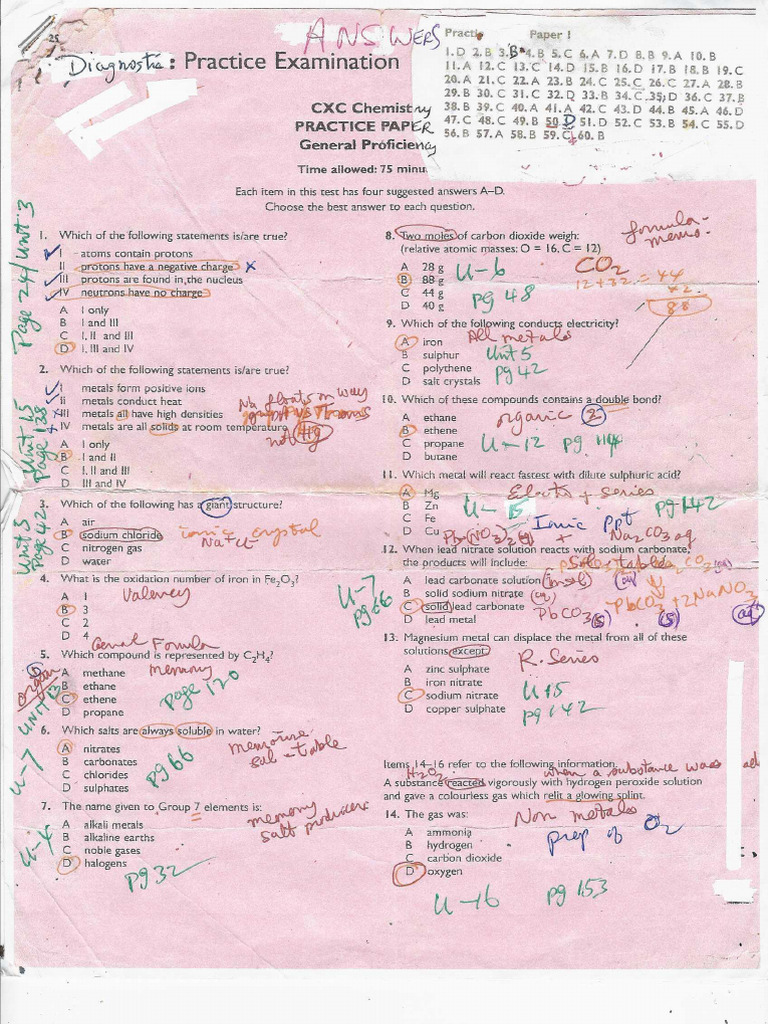 ANSWERS
Diagnostic: Practice Examination
Practi Paper 1
1.D 2.B 3.B 4.B 5.C 6.A 7.D 8.B 9.A 10.B
11.A 12.C 13.C 14.D 15.B 16.D 17.B 18.B 19.C
20.A 21.C 22.A 23.B 24.B 25.C 26.C 27.A 28.B
29.B 30.C 31.C 32.D 33.B 34.C 35.D 36.C 37.B
38.B 39.C 40.A 41.A 42.C 43.D 44.B 45.A 46.D
47.C 48.C 49.B 50.D 51.D 52.C 53.B 54.C 55.D
56.B 57.A 58.B 59.C 60.B
CXC Chemistry
PRACTICE PAPER
General Proficiency
Time allowed: 75 minu
Each item in this test has four suggested answers A–D.
Choose the best answer to each question.
Page 24/Unit 3
1. Which of the following statements is/are true?
I atoms contain protons
II protons have a negative charge x
III protons are found in the nucleus
IV neutrons have no charge
A I only
B I and III
C I, II and III
D I, III and IV
Unit 15
Page 138
2. Which of the following statements is/are true?
I metals form positive ions
II metals conduct heat
III metals all have high densities
IV metals are all solids at room temperature
Na floats on
not Hg
A I only
B I and II
C I, II and III
D III and IV
Unit 5
Page 42
3. Which of the following has a giant structure?
A air
B sodium chloride ionic crystal
Na+Cl-
C nitrogen gas
D water
4. What is the oxidation number of iron in Fe₂O₃?
U-7
pg 66
A 1 Valency
B 3
C 2
D 4
Formula
5. Which compound is represented by C₂H₄?
A methane memory
B ethane
C ethene page 120
D propane
UNIT 13
6. Which salts are always soluble in water?
A nitrates memorise
B carbonates table
C chlorides pg 66
D sulphates
U-7
7. The name given to Group 7 elements is:
A alkali metals memory
B alkaline earths salt producers
C noble gases
D halogens
U-4
pg 32
8. Two moles of carbon dioxide weigh:
(relative atomic masses: O = 16, C = 12)
formula-
memo.
A 28 g
B 88 g
C 44 g
D 40 g
U-6
pg 48
CO₂
12 + 32 = 44
88
9. Which of the following conducts electricity?
A iron All metals
B sulphur Unit 5
C polythene pg 42
D salt crystals
10. Which of these compounds contains a double bond?
A ethane organic 2
B ethene
C propane U-12 pg 114
D butane
11. Which metal will react fastest with dilute sulphuric acid?
A Mg series
B Zn U-15 pg 142
C Fe Ionic ppt
D Cu Pb(NO₃)₂ + Na₂CO₃ aq
12. When lead nitrate solution reacts with sodium carbonate,
the products will include:
A lead carbonate solution (insol) (aq)
B solid sodium nitrate (aq)
C solid lead carbonate PbCO₃ + 2NaNO₃
D lead metal PbCO₃(s) (s) (aq)
13. Magnesium metal can displace the metal from all of these
solutions except:
A zinc sulphate R. Series
B iron nitrate
C sodium nitrate U15
D copper sulphate pg 142
Items 14–16 refer to the following information.
H₂O₂ when a substance was
A substance reacted vigorously with hydrogen peroxide solution
and gave a colourless gas which relit a glowing splint.
14. The gas was: Non metals
A ammonia prep of O₂
B hydrogen
C carbon dioxide
D oxygen
U-16 pg 153